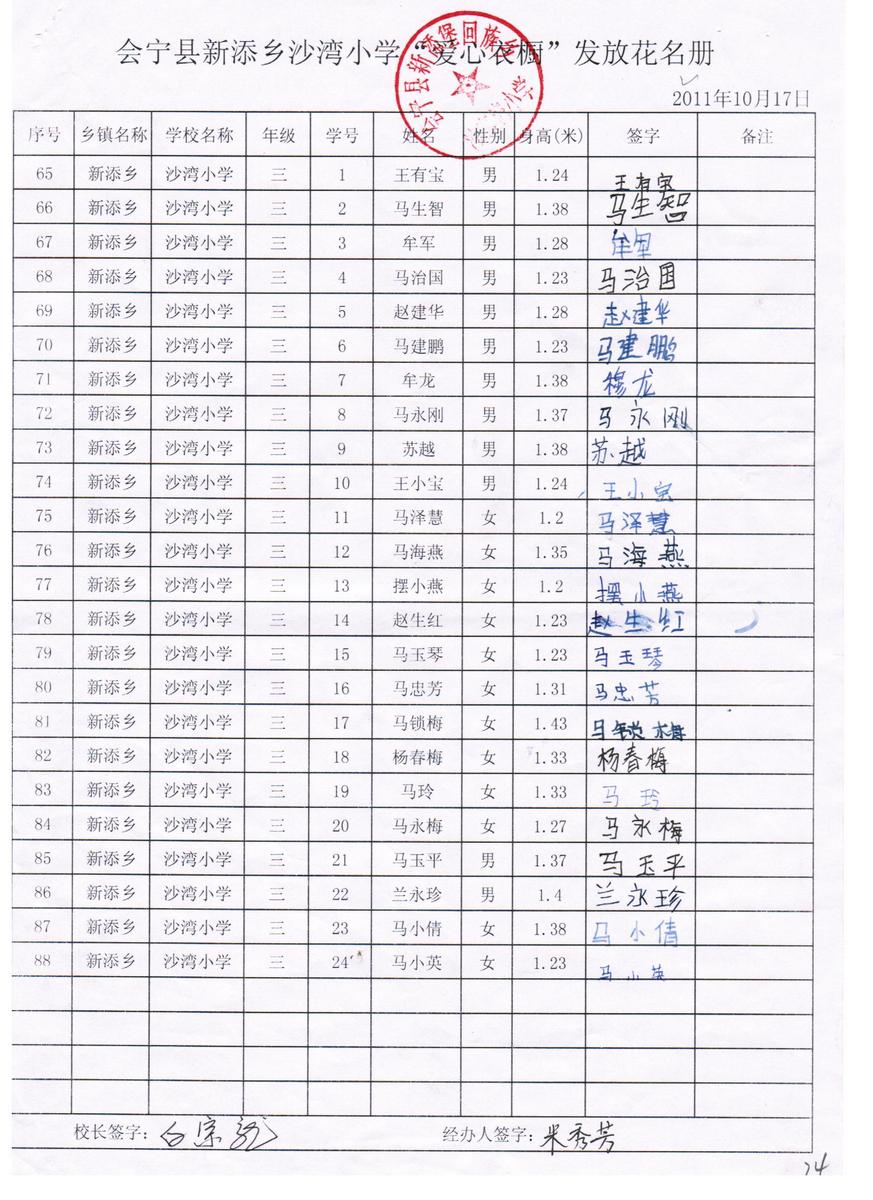 会宁县新添乡沙湾小学“爱心衣橱”发放花名册
会宁县新添堡回族乡
2011年10月17日
序号 乡镇名称 学校名称 年级 学号 姓名 性别 身高(米) 签字 备注
65 新添乡 沙湾小学 三 1 王有宝 男 1.24 王有宝
66 新添乡 沙湾小学 三 2 马生智 男 1.38 马生智
67 新添乡 沙湾小学 三 3 牟军 男 1.28 牟军
68 新添乡 沙湾小学 三 4 马治国 男 1.23 马治国
69 新添乡 沙湾小学 三 5 赵建华 男 1.28 赵建华
70 新添乡 沙湾小学 三 6 马建鹏 男 1.23 马建鹏
71 新添乡 沙湾小学 三 7 牟龙 男 1.38 穆龙
72 新添乡 沙湾小学 三 8 马永刚 男 1.37 马永刚
73 新添乡 沙湾小学 三 9 苏越 男 1.38 苏越
74 新添乡 沙湾小学 三 10 王小宝 男 1.24 王小宝
75 新添乡 沙湾小学 三 11 马泽慧 女 1.2 马泽慧
76 新添乡 沙湾小学 三 12 马海燕 女 1.35 马海燕
77 新添乡 沙湾小学 三 13 摆小燕 女 1.2 摆小燕
78 新添乡 沙湾小学 三 14 赵生红 女 1.23 赵生红
79 新添乡 沙湾小学 三 15 马玉琴 女 1.23 马玉琴
80 新添乡 沙湾小学 三 16 马忠芳 女 1.31 马忠芳
81 新添乡 沙湾小学 三 17 马锁梅 女 1.43 马锁梅
82 新添乡 沙湾小学 三 18 杨春梅 女 1.33 杨春梅
83 新添乡 沙湾小学 三 19 马玲 女 1.33 马玲
84 新添乡 沙湾小学 三 20 马永梅 女 1.27 马永梅
85 新添乡 沙湾小学 三 21 马玉平 男 1.37 马玉平
86 新添乡 沙湾小学 三 22 兰永珍 男 1.4 兰永珍
87 新添乡 沙湾小学 三 23 马小倩 女 1.38 马小倩
88 新添乡 沙湾小学 三 24 马小英 女 1.23 马小英
校长签字： 经办人签字：米秀芳
24